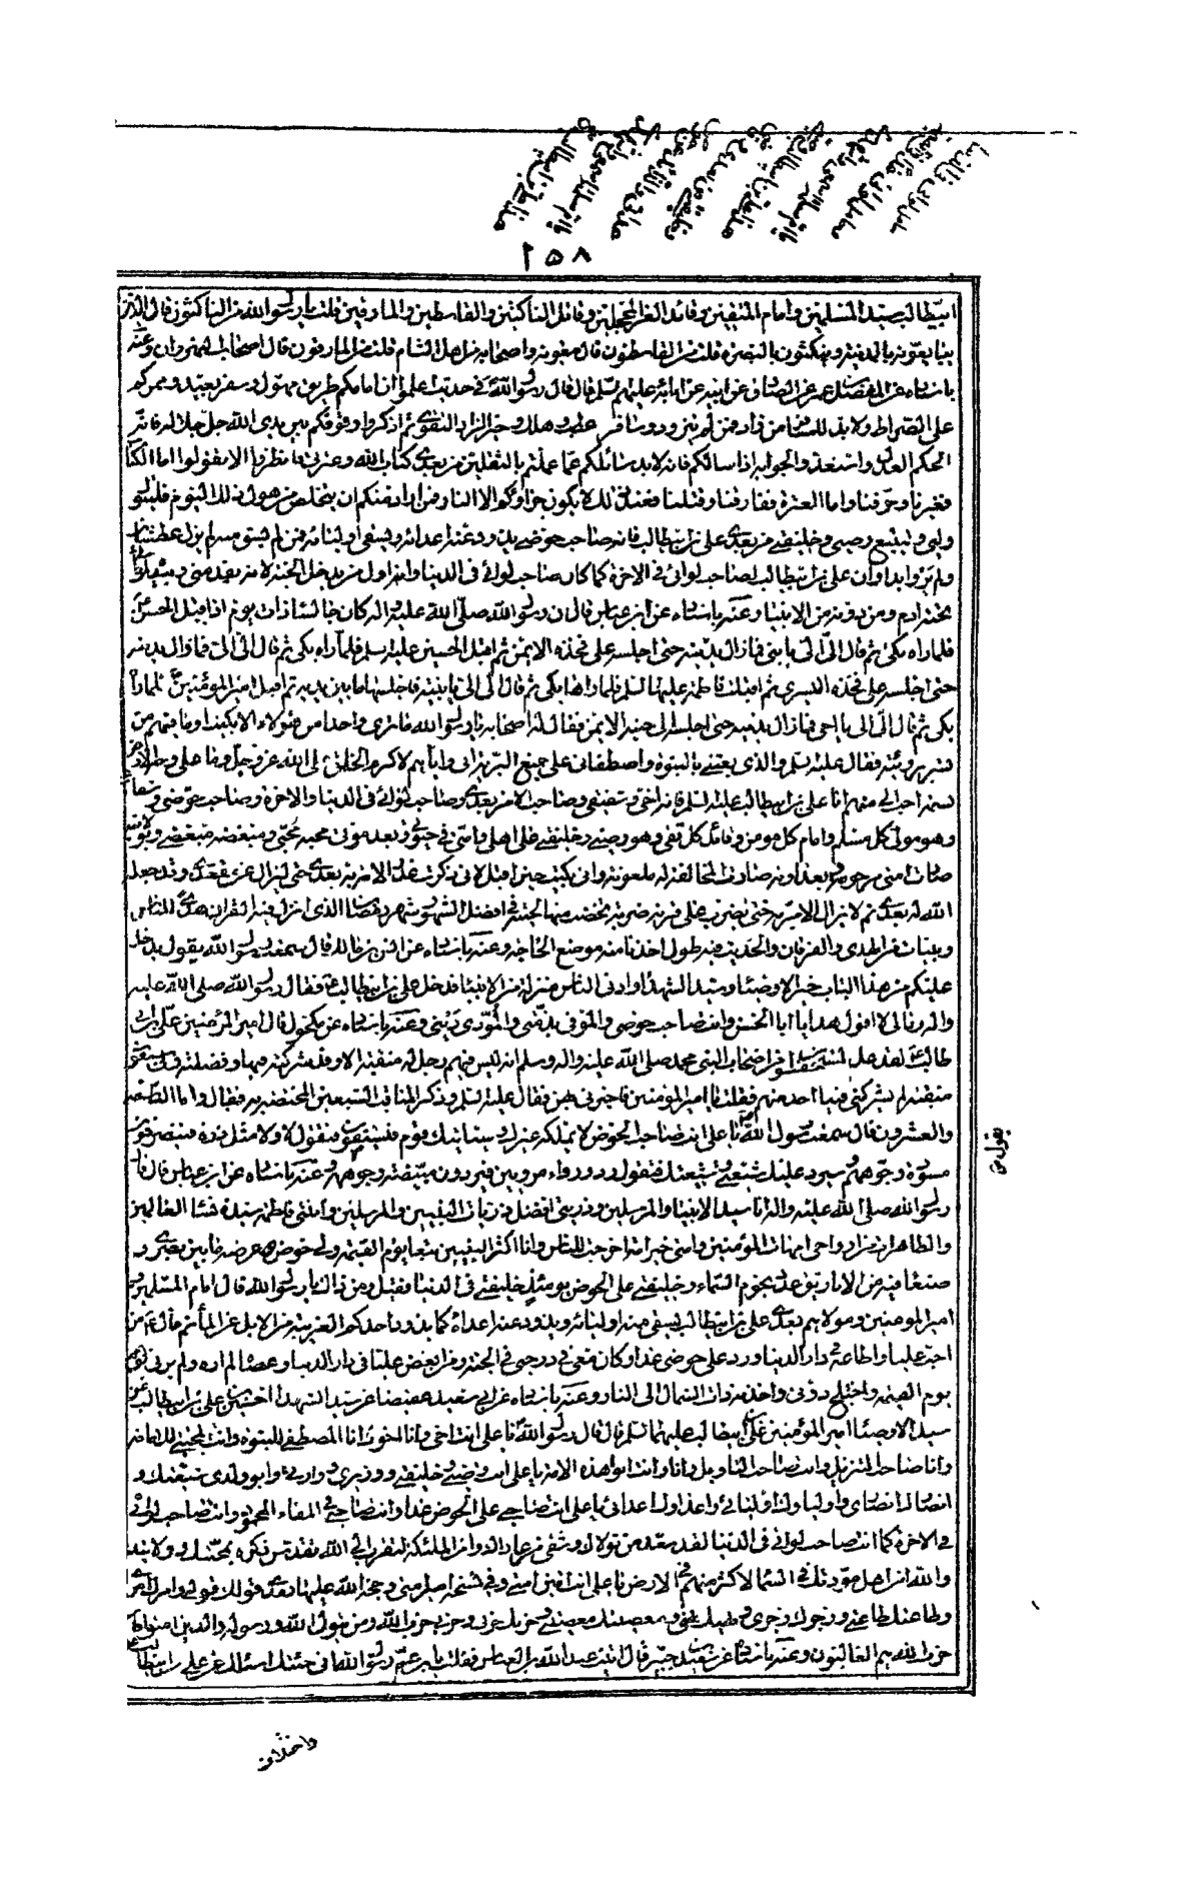 ١٥٨
ابيطالب سيد المسلمين وامام المتقين وقائد الغر المحجلين وقاتل الناكثين والقاسطين والمارقين قلت يا رسول الله من الناكثون قال الذين
يبايعونه بالمدينة وينكثون بالبصرة قلت من القاسطون قال معوية واصحابه من اهل الشام قلت من المارقون قال اصحاب النهروان وعنه
باسناده عن المفضل بن عمر عن الصادق عن ابيه عن ابائه عليهم السلم قال قال رسول الله في حديث اعلموا ان امامكم طريق مهول وسفر بعيد وممركم
على الصراط ولا بد للمسافر من زاد فمن لم يتزود وسافر عطب وهلك وخير الزاد التقوى ثم اذكروا وقوفكم بين يدى الله جل جلاله فانه
الحكم العدل واستعدوا لجوابه اذا سالكم فانه لا بد سائلكم عما عملتم بالثقلين من بعدى كتاب الله وعترتى فانظروا الا تقولوا اما الكتاب
فغيرنا وحرفنا واما العترة ففارقنا وقتلنا فعند ذلك لا يكون جزاؤكم الا النار فمن اراد منكم ان يتخلص من هول ذلك اليوم فليتول
وليي وليتبع وصيى وخليفتى من بعدى على بن ابيطالب فانه صاحب حوضى يذود عنه اعداءه ويسقى اوليائه فمن لم يسق منه لم يزل عطشانا
ولم يرو ابدا وان على بن ابيطالب لصاحب لوائى فى الاخرة كما كان صاحب لوائى فى الدنيا وانه اول من يدخل الجنة لانه يقدمنى وبيده لوائى
تحته ادم ومن دونه من الانبياء وعنه باسناده عن ابن عباس قال ان رسول الله صلى الله عليه واله كان جالسا ذات يوم اذ اقبل الحسن
فلما راه بكى ثم قال الى الى يا بنى فما زال يدنيه حتى اجلسه على فخذه الايمن ثم اقبل الحسين عليه السلم فلما راه بكى ثم قال الى الى فما زال يدنيه
حتى اجلسه على فخذه اليسرى ثم اقبلت فاطمة عليها السلم فلما راها بكى ثم قال الى الى يا بنية فاجلسها بين يديه ثم اقبل امير المؤمنين فلما راه
بكى ثم قال الى الى يا اخى فما زال يدنيه حتى اجلسه الى جنبه الايمن فقال له اصحابه يا رسول الله ما ترى واحدا من هؤلاء الا بكيت اوما فيهم من
تسر برؤيته فقال عليه السلم والذى بعثنى بالنبوة واصطفانى على جميع البرية انى واياهم لاكرم الخلق الى الله عز وجل وما على وجه الارض
نسمة احب الى منهم اما على بن ابيطالب عليه السلم فانه اخى وشفيقى وصاحب الامر بعدى وصاحب لوائى فى الدنيا والاخرة وصاحب حوضى وشفاعتى
وهو مولى كل مسلم وامام كل مومن وقائد كل تقى وهو وصيى وخليفتى على اهلى وامتى فى حيوتى وبعد موتى محبه محبى ومبغضه مبغضى وبولايته
صارت امتى مرحومة وبعداوته صارت المخالفة له ملعونة وانى بكيت حين اقبل لانى ذكرت غدر الامة به بعدى حتى انه ليزال عن مقعدى وقد جعله
الله له بعدى ثم لا يزال الامر به حتى يضرب على قرنه ضربة تخضب منها لحيته فى افضل الشهور شهر رمضان الذى انزل فيه القران هدى للناس
وبينات من الهدى والفرقان والحديث فيه طول اخذنا منه موضع الحاجة وعنه باسناده عن انس بن مالك قال سمعت رسول الله يقول يدخل
عليكم من هذا الباب خير الاوصياء وسيد الشهداء وادنى الناس منزلة من الانبياء فدخل على بن ابيطالب فقال رسول الله صلى الله عليه
واله ومالى لا اقول هذا يا ابا الحسن وانت صاحب حوضى والموفى بذمتى والمؤدى دينى وعنه باسناده عن مكحول قال امير المؤمنين على بن ابى
طالب لقد علم المستحفظون من اصحاب النبى محمد صلى الله عليه واله وسلم انه ليس فيهم رجل له منقبة الا وقد شركته فيها وفضلته ولى سبعون
منقبة لم يشركنى فيها احد منهم فقلت يا امير المؤمنين فاخبرنى بهن فقال عليه السلم وذكر المناقب السبعين المختصة به فقال واما التاسعة
والعشرون قال سمعت رسول الله يا على انت صاحب الحوض لا يملكه غيرك وسياتيك قوم فيستسقونك فتقول لا ولا مثل ذرة فينصرفون
مسودة وجوههم وسيرد عليك شيعتى وشيعتك فتقول ردوا رواء مرويين فيردون مبيضة وجوههم وعنه باسناده عن ابن عباس قال قال
رسول الله صلى الله عليه واله انا سيد الانبياء والمرسلين وذريتى افضل ذريات النبيين والمرسلين وابنتى فاطمة سيدة نساء العالمين
والطاهرات من ازواجى امهات المؤمنين وامتى خير امة اخرجت للناس وانا اكثر النبيين تبعا يوم القيمة ولى حوض عرضه ما بين بصرى و
صنعا فيه من الاباريق عدد نجوم السماء وخليفتى على الحوض يومئذ خليفتى فى الدنيا فقيل ومن ذاك يا رسول الله قال امام المسلمين و
امير المومنين ومولاهم بعدى على بن ابيطالب يسقى منه اوليائه ويذود عنه اعدائه كما يذود احدكم الغريبة من الابل عن الماء ثم قال من
احب عليا واطاعه فى دار الدنيا ورد على حوضى غدا وكان معى فى درجتى فى الجنة ومن ابغض عليا فى دار الدنيا وعصاه لم اره ولم يرنى
يوم القيمة واختلج دونى واخذ به ذات الشمال الى النار وعنه باسناده عن ابى سعيد عقيصا عن سيد الشهداء الحسين بن على بن ابيطالب عن
سيد الاوصياء امير المؤمنين على بن ابيطالب عليهما السلم قال قال رسول الله يا على انت اخى وانا اخوك انا المصطفى للنبوة وانت المجتبى للامامة
وانا صاحب التنزيل وانت صاحب التاويل وانا وانت ابوا هذه الامة يا على انت وصيى وخليفتى ووزيرى ووارثى وابو ولدى شيعتك و
انصارك انصارى واولياؤك اوليائى واعداؤك اعدائى يا على انت صاحبى على الحوض غدا وانت صاحبى فى المقام المحمود وانت صاحب لوائى
فى الاخرة كما انت صاحب لوائى فى الدنيا لقد سعد من تولاك وشقى من عاداك وان الملئكة لتتقرب الى الله تقدس ذكره بمحبتك وولايتك
والله ان اهل مودتك فى السماء لاكثر منهم فى الارض يا على انت امين امتى وحجة الله عليها بعدى قولك قولى وامرك امرى
وطاعتك طاعتى وزجرك زجرى ونهيك نهيى ومعصيتك معصيتى وحزبك حزبى وحزبى حزب الله ومن يتول الله ورسوله والذين امنوا فان
حزب الله هم الغالبون وعنه باسناده عن سعيد بن جبير قال اتيت عبد الله بن العباس فقلت يا ابن عم رسول الله انى جئتك اسئلك عن على بن ابيطالب
يقول
واختلاف